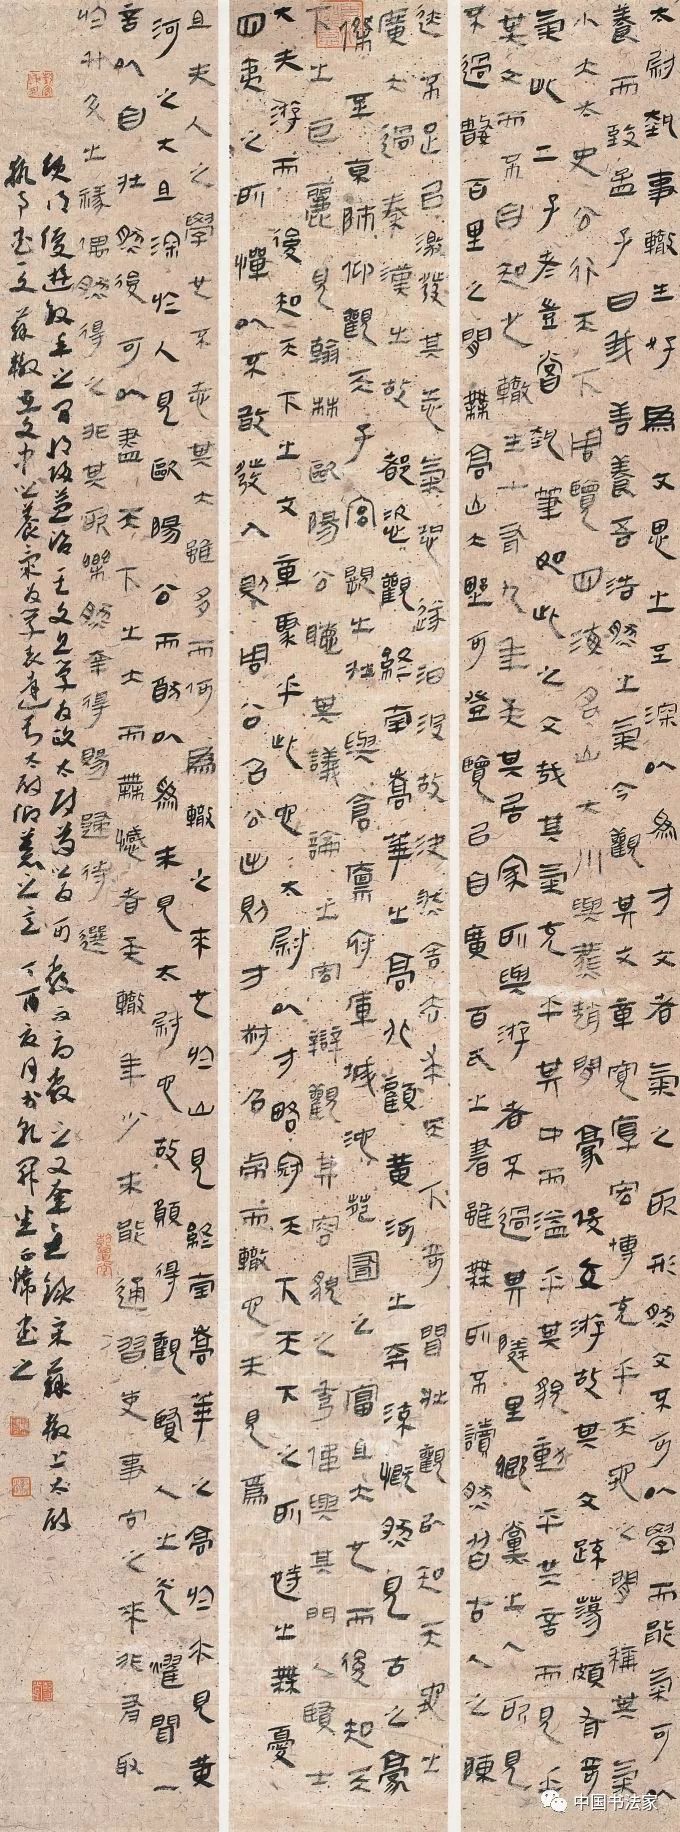 太尉執事轍生好為文思之至深以為才文者氣之所形然文不可以學而能氣可以
養而致孟子曰我善養吾浩然之氣今觀其文章寬厚宏博充乎天地之間稱其氣
小大太史公行天下周覽四海名山大川與燕趙間豪俊交游故其文疏蕩頗有奇
氣此二子者豈嘗執筆如此之文哉其氣充乎其中而溢乎其貌動乎其言而見乎
其文而不自知也轍生十有九年矣其居家所與游者不過其鄰里鄉黨之人所見
不過數百里之間無高山大野可登覽以自廣百氏之書雖無所不讀然皆古人之陳
迹不足以激發其志氣恐遂汩沒故決然舍去求天下奇聞壯觀以知天地之
廣大過秦漢之故都恣觀終南嵩華之高北顧黃河之奔流慨然見古之豪
傑至京師仰觀天子宮闕之壯與倉廩府庫城池苑囿之富且大也而後知天
下之巨麗見翰林歐陽公聽其議論之宏辯觀其容貌之秀偉與其門人賢士
大夫游而後知天下之文章聚乎此也太尉以才略冠天下天下之所恃之無憂
四夷之所憚以不敢發入則周公召公出則方叔召虎而轍也未見焉
且夫人之學也不志其大雖多而何為轍之來也於山見終南嵩華之高於水見黃
河之大且深於人見歐陽公而猶以為未見太尉也故願得觀賢人之光耀聞一
言以自壯然後可以盡天下之大而無憾者矣轍年少未能通習吏事向之來非有取
於升斗之祿偶然得之非其所樂然幸得賜歸待選
使得優游數年之間將以益治其文且學為政太尉苟以為可教而辱教之又幸矣錄宋蘇轍上太尉
執事書一文蘇轍在文中以養氣為學表達對太尉仰慕之意丁酉夏月書之
中国书法家